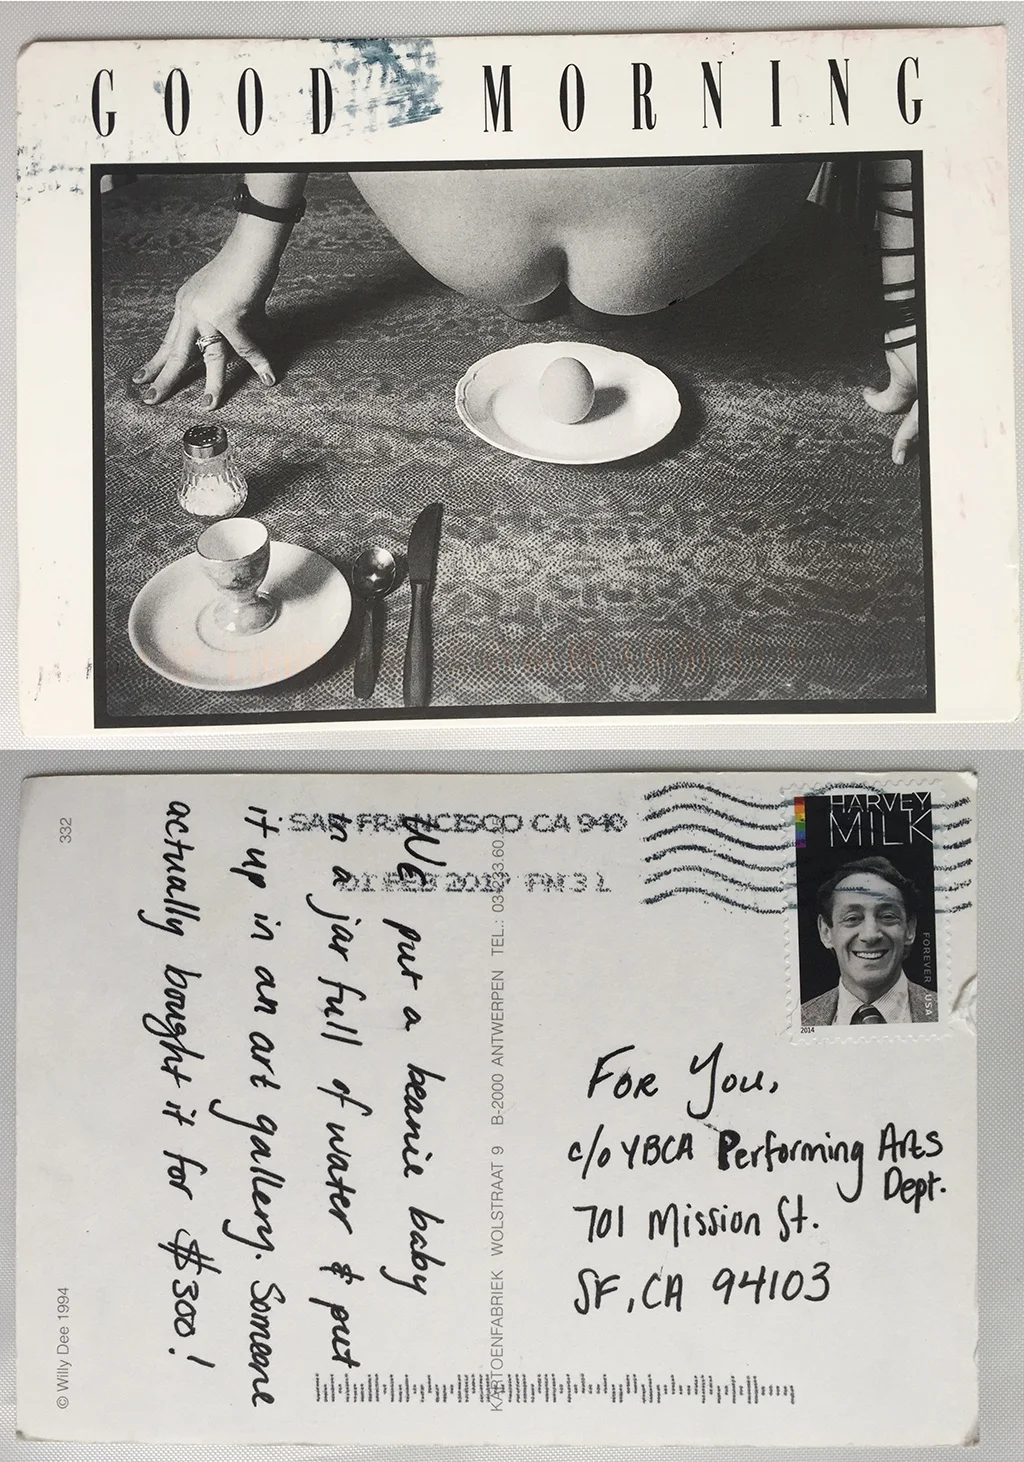 GOOD MORNING
332
© Willy Dee 1994
WE put a beanie baby
in a jar full of water & put
it up in an art gallery. Someone
actually bought it for $300!
KARTOENFABRIEK WOLSTRAAT 9 B-2000 ANTWERPEN TEL.:
SAN FRANCISCO CA 940
01 FEB 2017 PM 3 L
HARVEY
MILK
FOREVER USA
2014
FOR You,
c/o YBCA Performing Arts
Dept.
701 Mission St.
SF, CA 94103